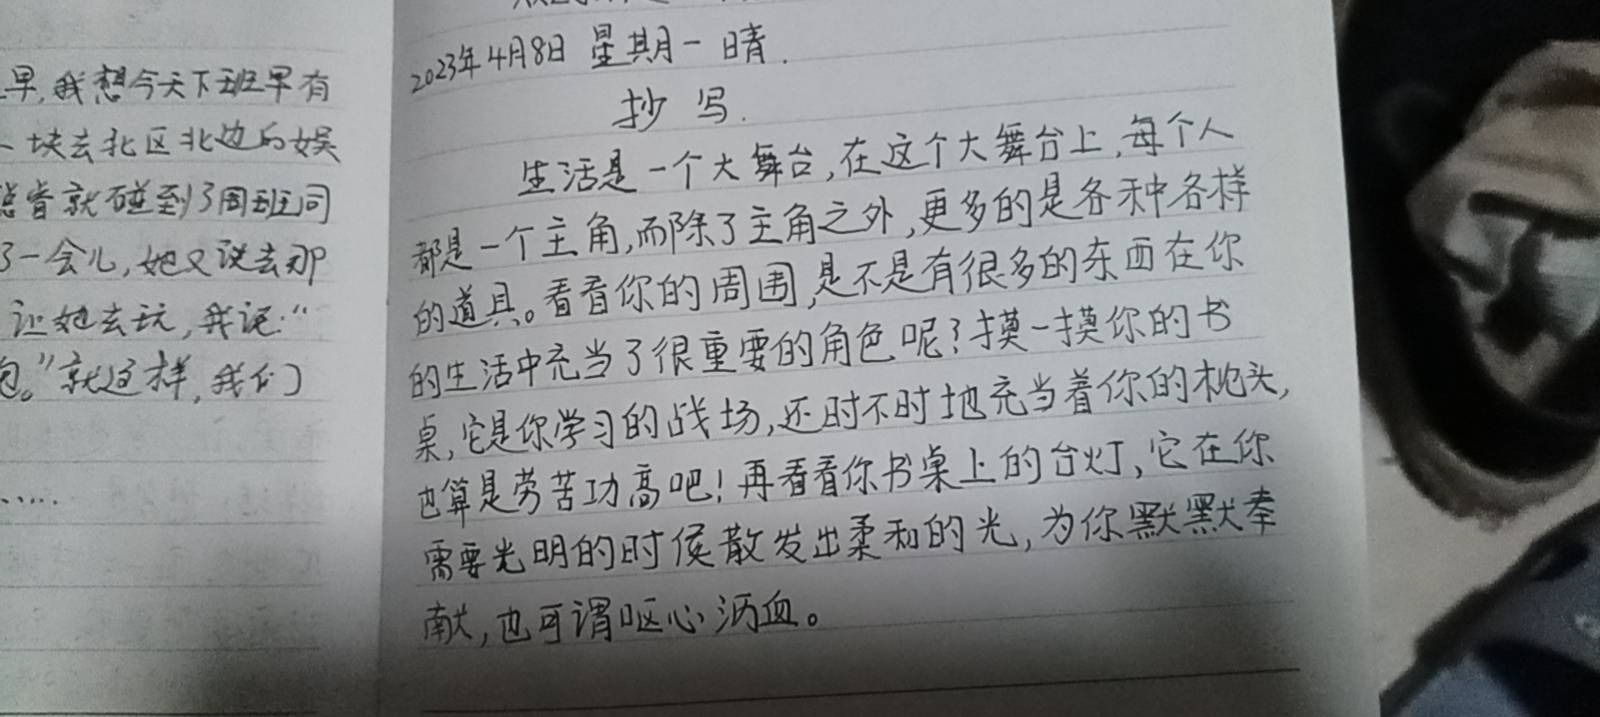 早,我想今天下班早有
一块去北区北边的娱
就碰到了周班同
了一会儿,她又说去那
让她去玩,我说:“
”就这样,我们
……
2023年4月8日 星期一 晴.
抄 写.
生活是一个大舞台,在这个大舞台上,每个人
都是一个主角,而除了主角之外,更多的是各种各样
的道具。看看你的周围,是不是有很多的东西在你
的生活中充当了很重要的角色呢?摸一摸你的书
桌,它是你学习的战场,还时不时地充当着你的枕头,
也算是劳苦功高吧!再看看你书桌上的台灯,它在你
需要光明的时候散发出柔和的光,为你默默奉
献,也可谓呕心沥血。